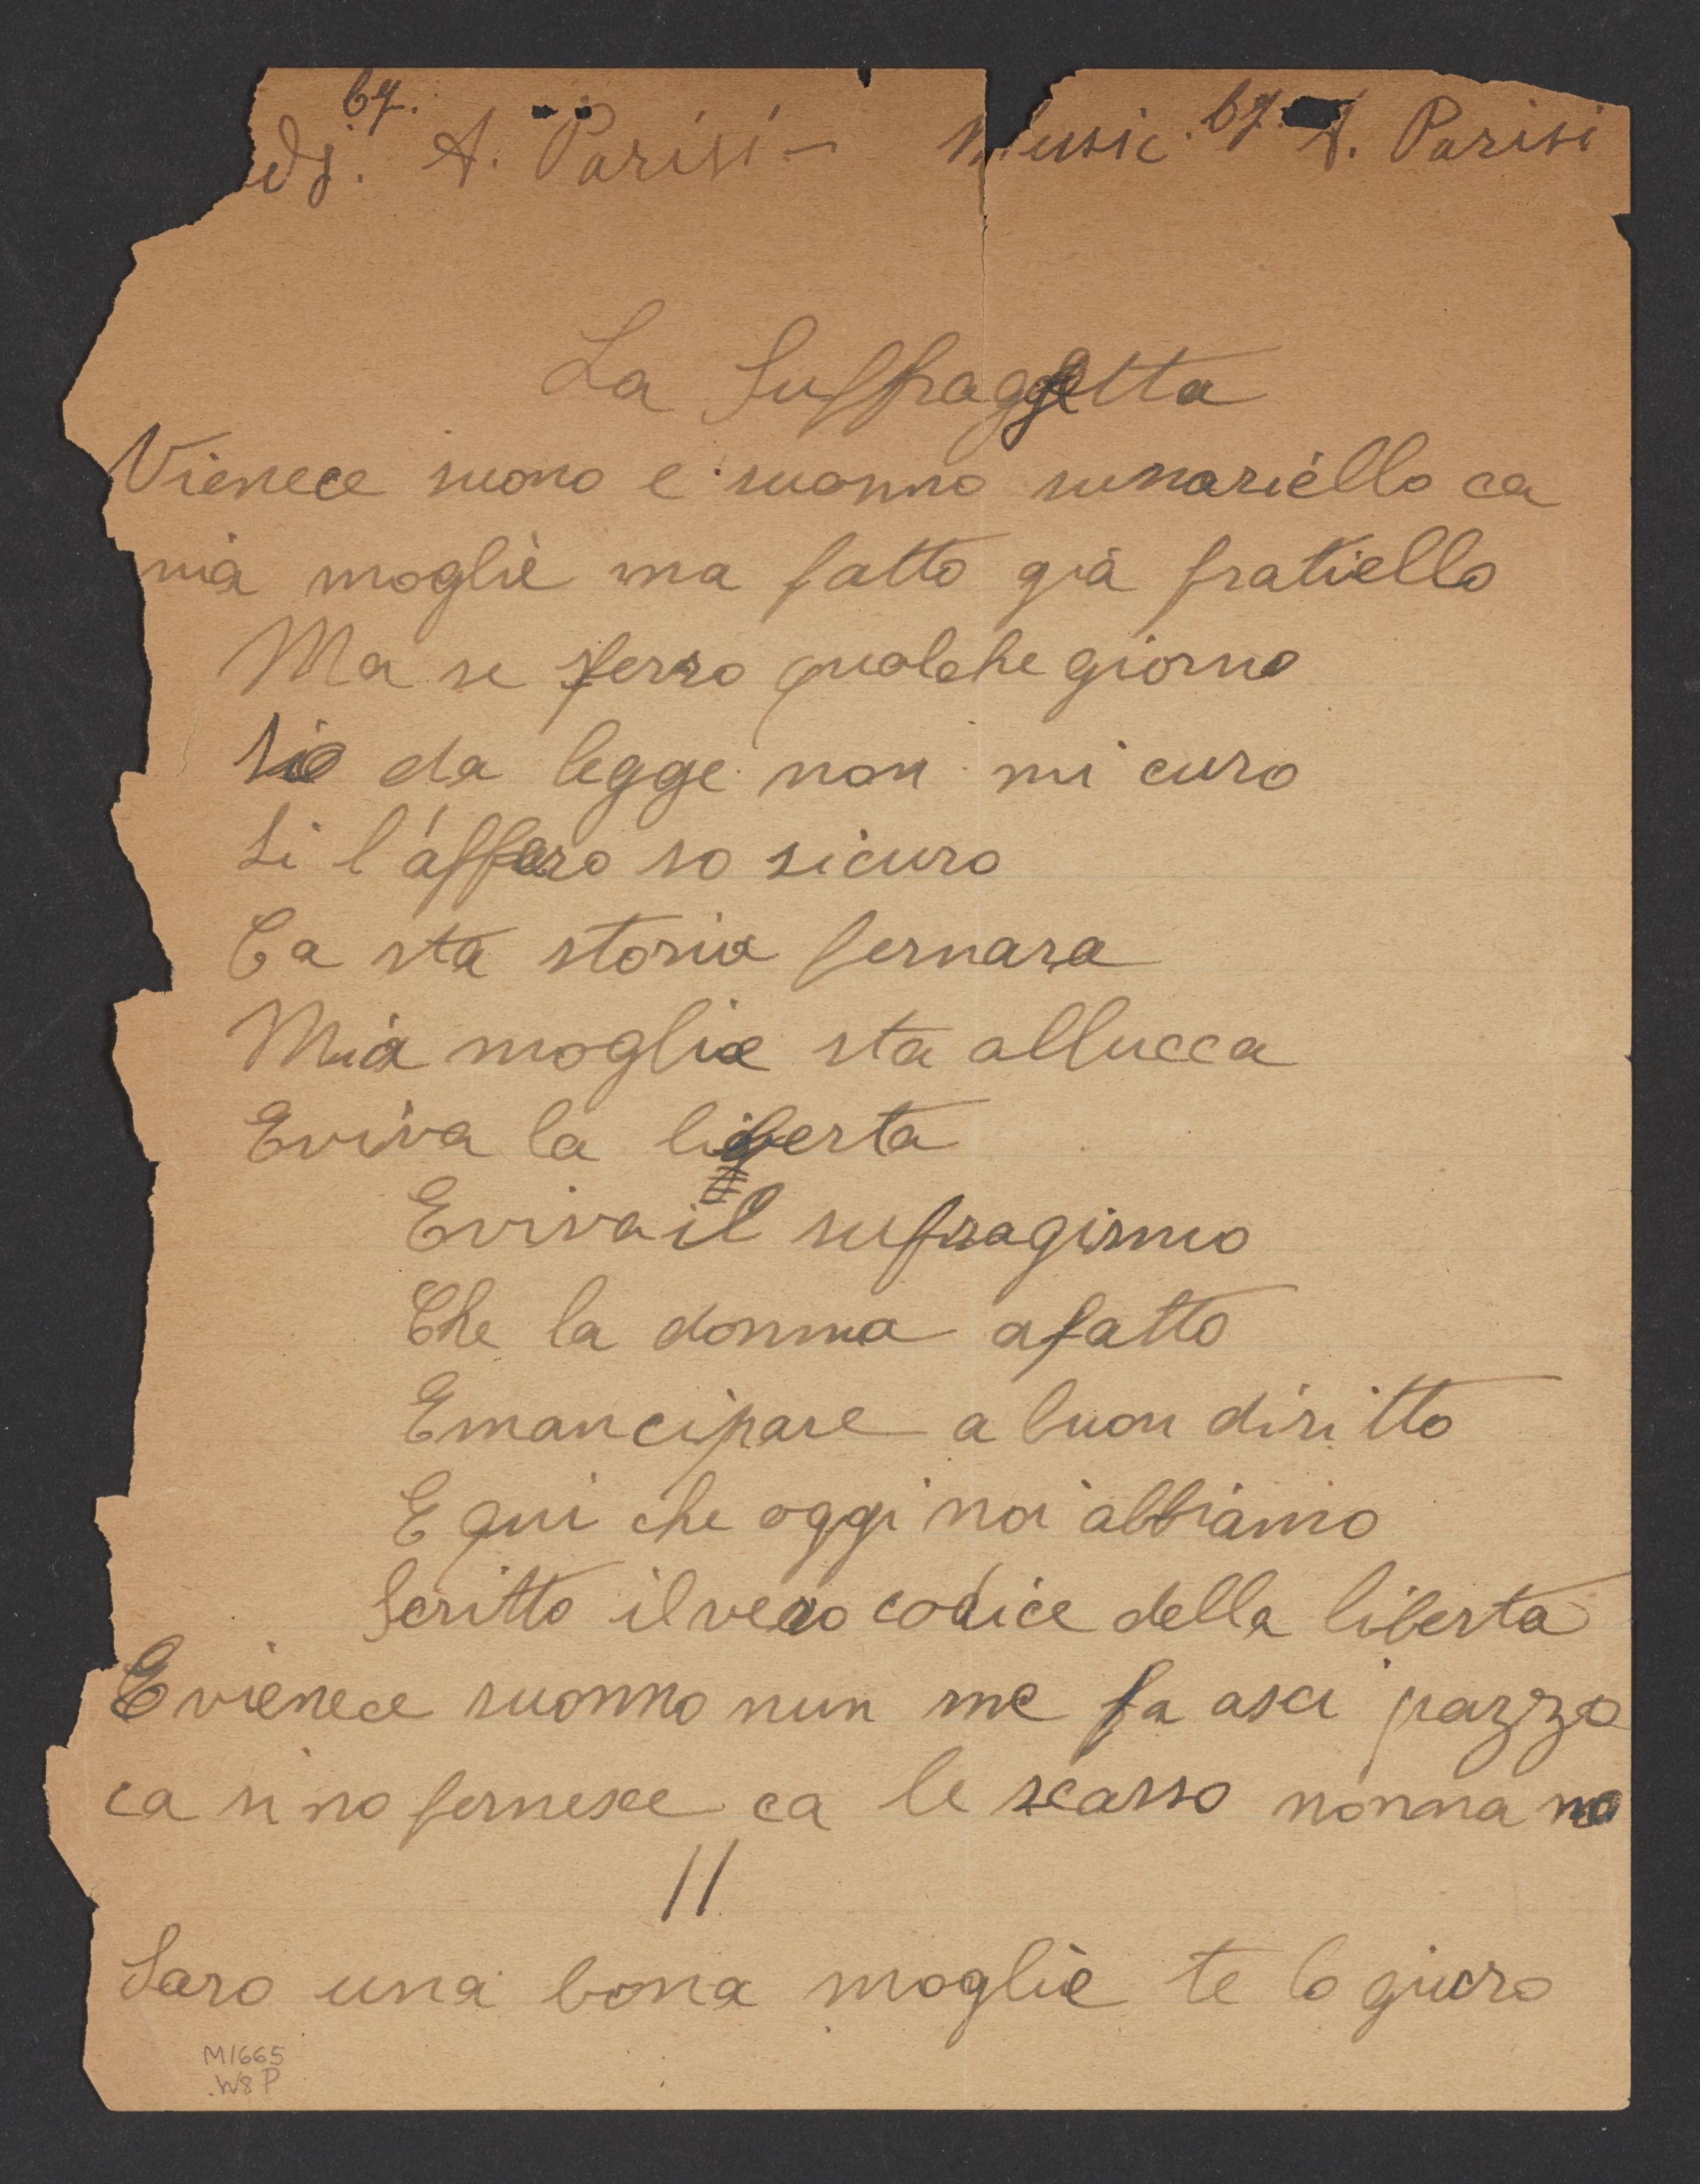 ds. by. A. Parisi – Music. by. A. Parisi
La Suffraggetta
Vienece suono e suonno sunnariéllo ca
mia moglie ma fatto già fratiello
Ma se sferro qualche giorno
da legge non mi curo
Si l'afferro so sicuro
Ca sta storia fernara
Mia moglie sta allucca
Eviva la liberta
Eviva il sufragismo
Che la donna a fatto
Emancipare a buon diritto
E qui che oggi noi abbiamo
Scritto il vero codice della liberta
E vienece suonno nun me fa asci pazzo
ca si no fernesce ca le scasso nonna no
II
Saro una bona moglie te lo giuro
M1665
.W8 P